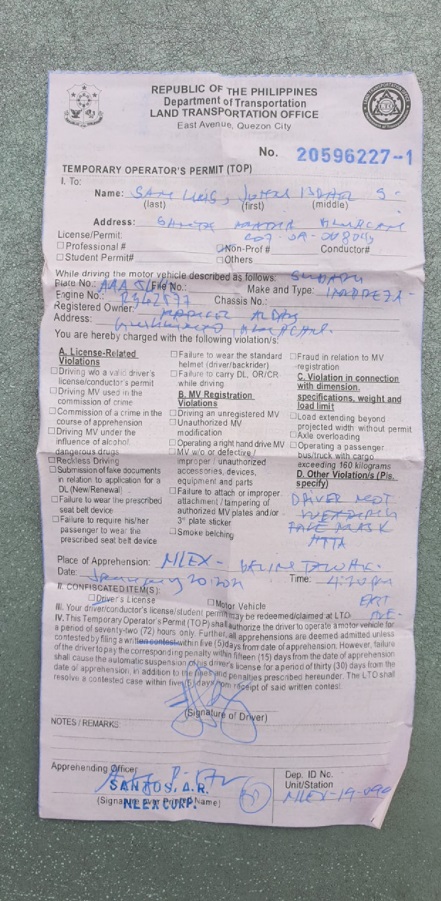 REPUBLIC OF THE PHILIPPINES
Department of Transportation
LAND TRANSPORTATION OFFICE
East Avenue, Quezon City
No. 20596227-1
TEMPORARY OPERATOR'S PERMIT (TOP)
I. To:
Name:
(last) (first) (middle)
Address:
License/Permit:
Professional # Non-Prof # Conductor#
Student Permit# Others
While driving the motor vehicle described as follows: SUBARU
Plate No.: File No.: Make and Type: IMPREZA
Engine No.: Chassis No.:
Registered Owner:
Address:
You are hereby charged with the following violation/s:
A. License-Related
Violations
Driving w/o a valid driver's
license/conductor's permit
Driving MV used in the
commission of crime
Commission of a crime in the
course of apprehension
Driving MV under the
influence of alcohol,
dangerous drugs
Reckless Driving
Submission of fake documents
in relation to application for a
DL (New/Renewal)
Failure to wear the prescribed
seat belt device
Failure to require his/her
passenger to wear the
prescribed seat belt device
Failure to wear the standard
helmet (driver/backrider)
Failure to carry DL, OR/CR
while driving
B. MV Registration
Violations
Driving an unregistered MV
Unauthorized MV
modification
Operating a right hand drive MV
MV w/o or defective /
improper / unauthorized
accessories, devices,
equipment and parts
Failure to attach or improper
attachment / tampering of
authorized MV plates and/or
3rd plate sticker
Smoke belching
Fraud in relation to MV
registration
C. Violation in connection
with dimension,
specifications, weight and
load limit
Load extending beyond
projected width without permit
Axle overloading
Operating a passenger
bus/truck with cargo
exceeding 160 kilograms
D. Other Violation/s (Pls.
specify)
DRIVER NOT
WEARING
FACE MASK
Place of Apprehension: NLEX -
Date: January 20, 2021 Time: 4:20 pm
EXIT
II. CONFISCATED ITEM(S):
Driver's License Motor Vehicle
III. Your driver/conductor's license/student permit may be redeemed/claimed at LTO
IV. This Temporary Operator's Permit (TOP) shall authorize the driver to operate a motor vehicle for
a period of seventy-two (72) hours only. Further, all apprehensions are deemed admitted unless
contested by filing a written contest within five (5) days from date of apprehension. However, failure
of the driver to pay the corresponding penalty within fifteen (15) days from the date of apprehension
shall cause the automatic suspension of the driver's license for a period of thirty (30) days from the
date of apprehension, in addition to the fines and penalties prescribed hereunder. The LTO shall
resolve a contested case within five (5) days from receipt of said written contest.
(Signature of Driver)
NOTES / REMARKS:
Apprehending Officer
SANTOS, A.R.
(Signature over Printed Name)
NLEX CORP.
Dep. ID No.
Unit/Station
NLEX-19-090